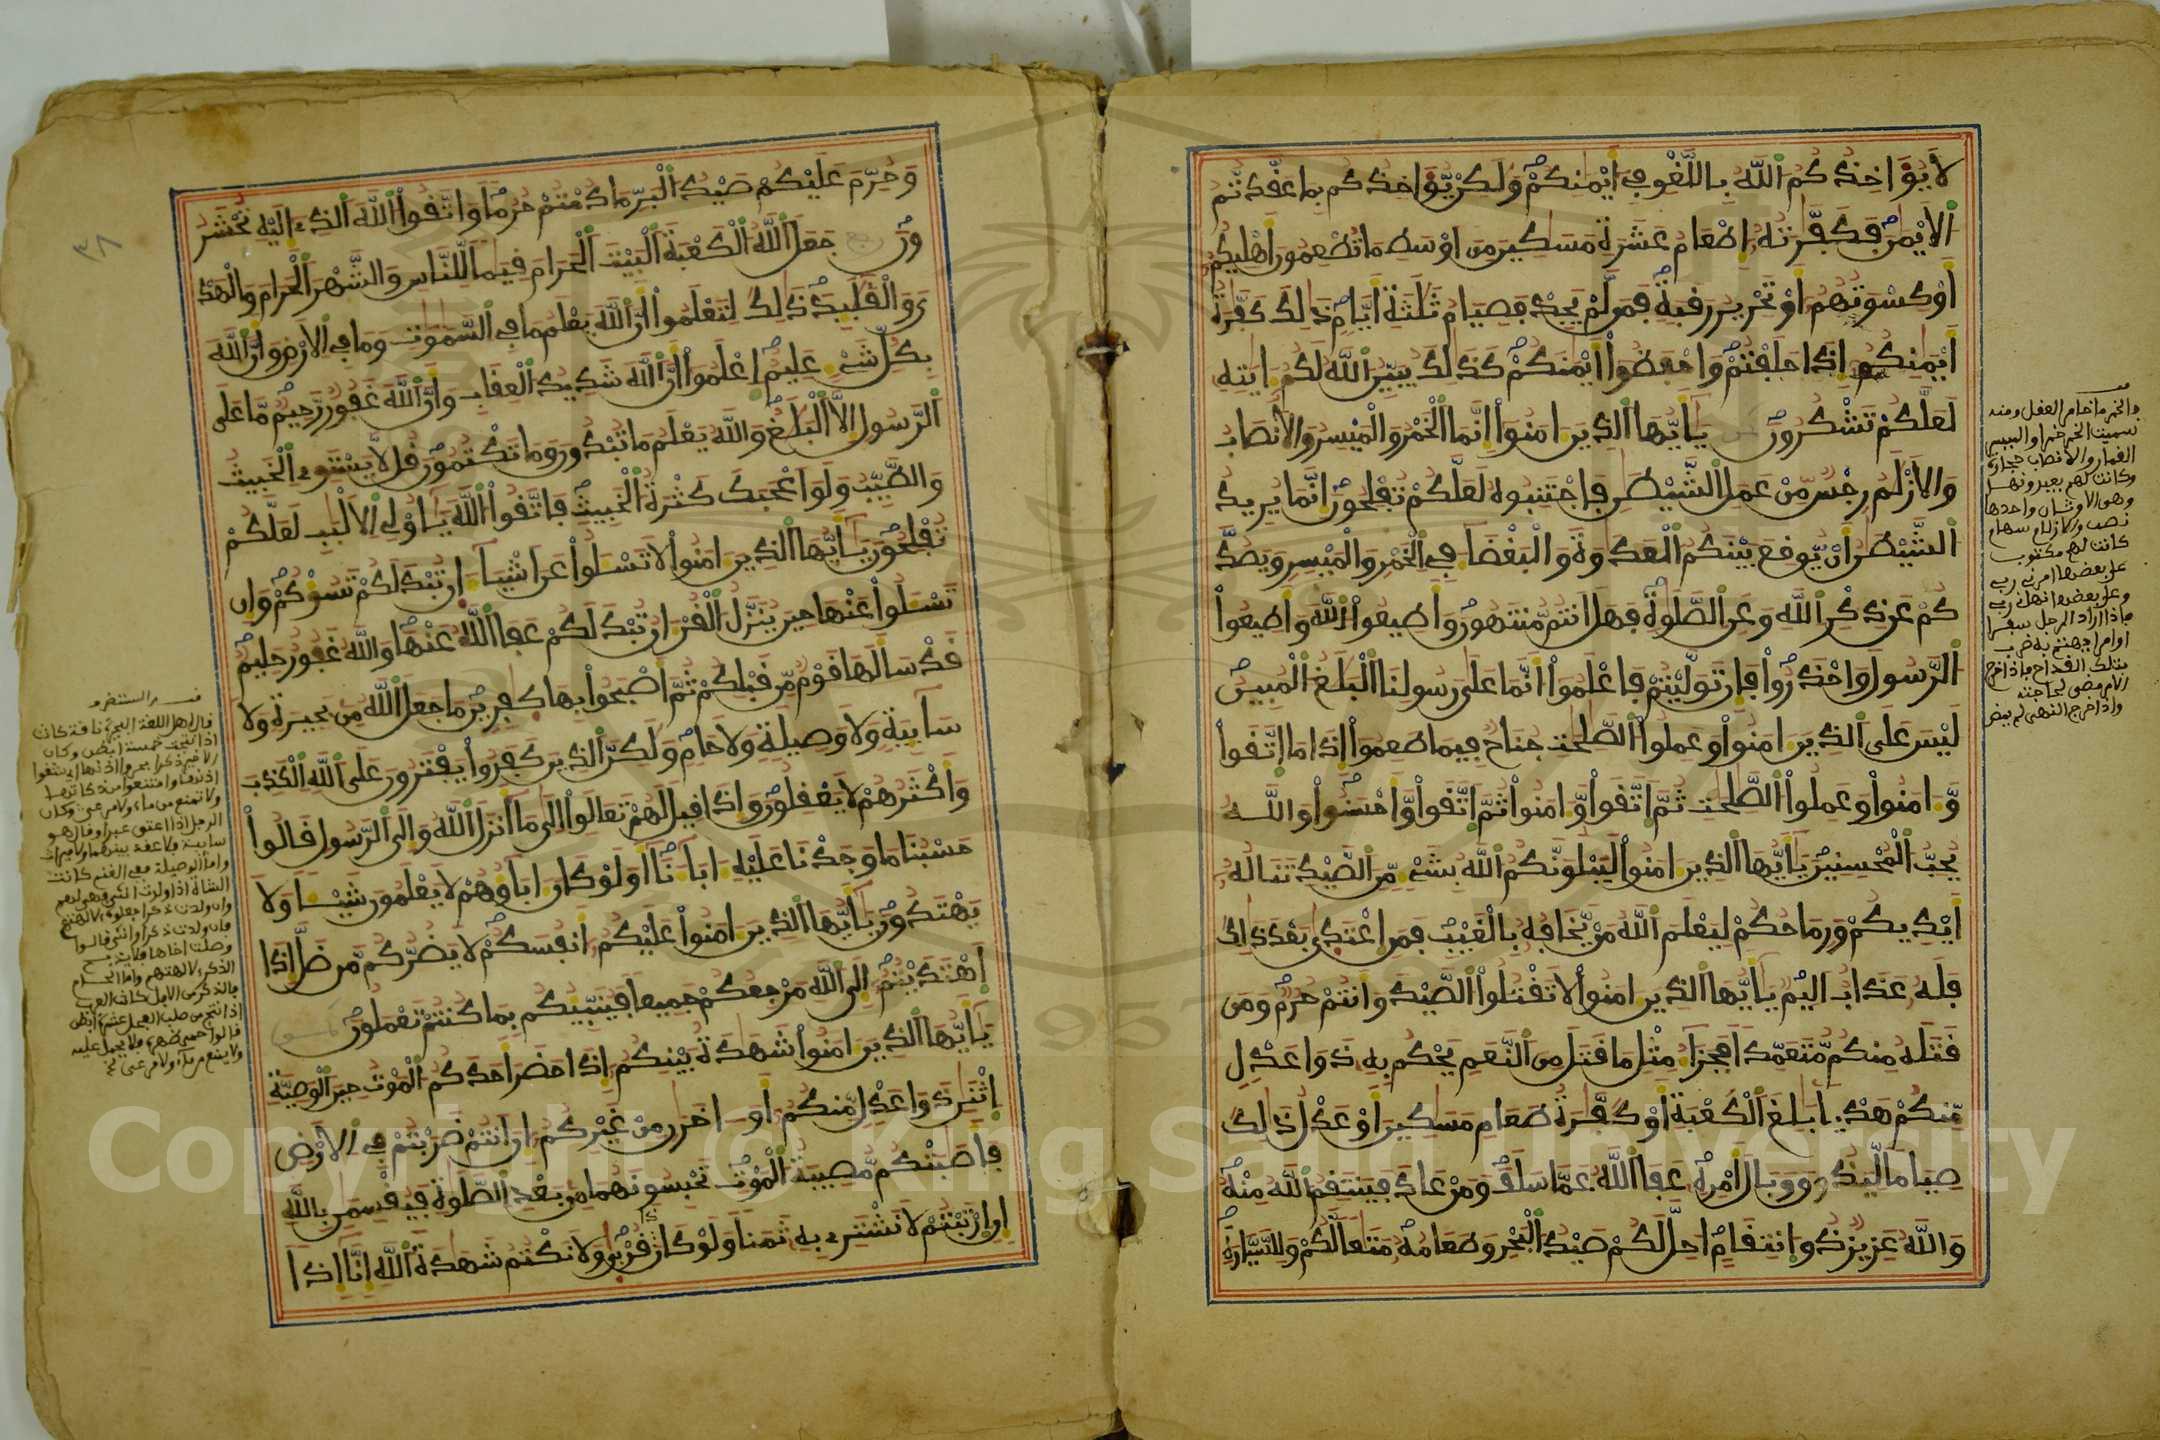 لَا يُؤَاخِذُكُمُ ٱللَّهُ بِٱللَّغْوِ فِي أَيْمَٰنِكُمْ وَلَٰكِنْ يُّؤَاخِذُكُم بِمَا عَقَّدتُّمُ
ٱلَايْمَٰنَ فَكَفَّٰرَتُهُ إِطْعَامُ عَشَرَةِ مَسَٰكِينَ مِنَ اَوْسَطِ مَا تُطْعِمُونَ أَهْلِيكُمُ
أَوْ كِسْوَتُهُمُ أَوْ تَحْرِيرُ رَقَبَةٍ فَمَن لَّمْ يَجِدْ فَصِيَامُ ثَلَٰثَةِ أَيَّامٍ ذَٰلِكَ كَفَّٰرَةُ
أَيْمَٰنِكُمُ إِذَا حَلَفْتُمْ وَاحْفَظُواْ أَيْمَٰنَكُمْ كَذَٰلِكَ يُبَيِّنُ ٱللَّهُ لَكُمُ ءَايَٰتِهِ
لَعَلَّكُمْ تَشْكُرُونَ يَٰأَيُّهَا ٱلذِينَ ءَامَنُواْ إِنَّمَا ٱلْخَمْرُ وَالْمَيْسِرُ وَالَانصَابُ
وَالَازْلَٰمُ رِجْسٌ مِّنْ عَمَلِ ٱلشَّيْطَٰنِ فَاجْتَنِبُوهُ لَعَلَّكُمْ تُفْلِحُونَ إِنَّمَا يُرِيدُ
ٱلشَّيْطَٰنُ أَنْ يُّوقِعَ بَيْنَكُمُ ٱلْعَدَٰوَةَ وَالْبَغْضَاءَ فِي ٱلْخَمْرِ وَالْمَيْسِرِ وَيَصُدَّ
كُمْ عَن ذِكْرِ ٱللَّهِ وَعَنِ ٱلصَّلَوٰةِ فَهَلَ اَنتُم مُّنتَهُونَ وَأَطِيعُواْ ٱللَّهَ وَأَطِيعُواْ
ٱلرَّسُولَ وَاحْذَرُواْ فَإِن تَوَلَّيْتُمْ فَاعْلَمُواْ أَنَّمَا عَلَىٰ رَسُولِنَا ٱلْبَلَٰغُ ٱلْمُبِينُ
لَيْسَ عَلَى ٱلذِينَ ءَامَنُواْ وَعَمِلُواْ ٱلصَّٰلِحَٰتِ جُنَاحٌ فِيمَا طَعِمُواْ إِذَا مَا ٱتَّقَواْ
وَّءَامَنُواْ وَعَمِلُواْ ٱلصَّٰلِحَٰتِ ثُمَّ ٱتَّقَواْ وَّءَامَنُواْ ثُمَّ ٱتَّقَواْ وَّأَحْسَنُواْ وَاللَّهُ
يُحِبُّ ٱلْمُحْسِنِينَ يَٰأَيُّهَا ٱلذِينَ ءَامَنُواْ لَيَبْلُوَنَّكُمُ ٱللَّهُ بِشَيْءٍ مِّنَ ٱلصَّيْدِ تَنَالُهُ
أَيْدِيكُمْ وَرِمَاحُكُمْ لِيَعْلَمَ ٱللَّهُ مَنْ يَّخَافُهُ بِالْغَيْبِ فَمَنِ ٱعْتَدَىٰ بَعْدَ ذَٰلِكَ
فَلَهُ عَذَابٌ اَلِيمٌ يَٰأَيُّهَا ٱلذِينَ ءَامَنُواْ لَا تَقْتُلُواْ ٱلصَّيْدَ وَأَنتُمْ حُرُمٌ وَمَن
قَتَلَهُ مِنكُم مُّتَعَمِّدًا فَجَزَاءُ مِثْلِ مَا قَتَلَ مِنَ ٱلنَّعَمِ يَحْكُمُ بِهِ ذَوَا عَدْلٍ
مِّنكُمْ هَدْيًا بَٰلِغَ ٱلْكَعْبَةِ أَوْ كَفَّٰرَةُ طَعَامِ مَسَٰكِينَ أَوْ عَدْلُ ذَٰلِكَ
صِيَامًا لِّيَذُوقَ وَبَالَ أَمْرِهِ عَفَا ٱللَّهُ عَمَّا سَلَفَ وَمَنْ عَادَ فَيَنتَقِمُ ٱللَّهُ مِنْهُ
وَاللَّهُ عَزِيزٌ ذُو ٱنتِقَامٍ أُحِلَّ لَكُمْ صَيْدُ ٱلْبَحْرِ وَطَعَامُهُ مَتَٰعًا لَّكُمْ وَلِلسَّيَّارَةِ
والخمر ما خامر العقل ومنه
سميت الخمر خمرا والميسر
القمار والأنصاب حجارة
وكانت لهم يعبدونها
وهي الأوثان واحدها
نصب والأزلام سهام
كانت لهم مكتوب
على بعضها أمرني ربي
وعلى بعضها نهاني ربي
فإذا أراد الرجل سفرا
بتلك القداح فإذا خرج
الأمر مضى لحاجته
وإذا خرج النهي لم يمض
وَحُرِّمَ عَلَيْكُمْ صَيْدُ ٱلْبَرِّ مَا دُمْتُمْ حُرُمًا وَاتَّقُواْ ٱللَّهَ ٱلذِي إِلَيْهِ تُحْشَرُ
ونَ جَعَلَ ٱللَّهُ ٱلْكَعْبَةَ ٱلْبَيْتَ ٱلْحَرَامَ قِيَٰمًا لِّلنَّاسِ وَالشَّهْرَ ٱلْحَرَامَ وَالْهَدْ
يَ وَالْقَلَٰئِدَ ذَٰلِكَ لِتَعْلَمُواْ أَنَّ ٱللَّهَ يَعْلَمُ مَا فِي ٱلسَّمَٰوَٰتِ وَمَا فِي ٱلَارْضِ وَأَنَّ ٱللَّهَ
بِكُلِّ شَيْءٍ عَلِيمٌ اِعْلَمُواْ أَنَّ ٱللَّهَ شَدِيدُ ٱلْعِقَابِ وَأَنَّ ٱللَّهَ غَفُورٌ رَّحِيمٌ مَّا عَلَى
ٱلرَّسُولِ إِلَّا ٱلْبَلَٰغُ وَاللَّهُ يَعْلَمُ مَا تُبْدُونَ وَمَا تَكْتُمُونَ قُل لَّا يَسْتَوِي ٱلْخَبِيثُ
وَالطَّيِّبُ وَلَوَ اَعْجَبَكَ كَثْرَةُ ٱلْخَبِيثِ فَاتَّقُواْ ٱللَّهَ يَٰأُوْلِي ٱلَالْبَٰبِ لَعَلَّكُمْ
تُفْلِحُونَ يَٰأَيُّهَا ٱلذِينَ ءَامَنُواْ لَا تَسْـَٔلُواْ عَنَ اَشْيَاءَ إِن تُبْدَ لَكُمْ تَسُؤْكُمْ وَإِن
تَسْـَٔلُواْ عَنْهَا حِينَ يُنَزَّلُ ٱلْقُرْءَانُ تُبْدَ لَكُمْ عَفَا ٱللَّهُ عَنْهَا وَاللَّهُ غَفُورٌ حَلِيمٌ
قَدْ سَأَلَهَا قَوْمٌ مِّن قَبْلِكُمْ ثُمَّ أَصْبَحُواْ بِهَا كَٰفِرِينَ مَا جَعَلَ ٱللَّهُ مِن بَحِيرَةٍ وَلَا
سَائِبَةٍ وَلَا وَصِيلَةٍ وَلَا حَامٍ وَلَٰكِنَّ ٱلذِينَ كَفَرُواْ يَفْتَرُونَ عَلَى ٱللَّهِ ٱلْكَذِبَ
وَأَكْثَرُهُمْ لَا يَعْقِلُونَ وَإِذَا قِيلَ لَهُمْ تَعَالَوِاْ إِلَىٰ مَا أَنزَلَ ٱللَّهُ وَإِلَى ٱلرَّسُولِ قَالُواْ
حَسْبُنَا مَا وَجَدْنَا عَلَيْهِ ءَابَاءَنَا أَوَلَوْ كَانَ ءَابَاؤُهُمْ لَا يَعْلَمُونَ شَيْـًٔا وَلَا
يَهْتَدُونَ يَٰأَيُّهَا ٱلذِينَ ءَامَنُواْ عَلَيْكُمُ أَنفُسَكُمْ لَا يَضُرُّكُم مَّن ضَلَّ إِذَا
ٱهْتَدَيْتُمُ إِلَى ٱللَّهِ مَرْجِعُكُمْ جَمِيعًا فَيُنَبِّئُكُم بِمَا كُنتُمْ تَعْمَلُونَ
يَٰأَيُّهَا ٱلذِينَ ءَامَنُواْ شَهَٰدَةُ بَيْنِكُمُ إِذَا حَضَرَ أَحَدَكُمُ ٱلْمَوْتُ حِينَ ٱلْوَصِيَّةِ
ٱثْنَٰنِ ذَوَا عَدْلٍ مِّنكُمُ أَوَ ءَاخَرَٰنِ مِنْ غَيْرِكُمُ إِنَ اَنتُمْ ضَرَبْتُمْ فِي ٱلَارْضِ
فَأَصَٰبَتْكُم مُّصِيبَةُ ٱلْمَوْتِ تَحْبِسُونَهُمَا مِن بَعْدِ ٱلصَّلَوٰةِ فَيُقْسِمَٰنِ بِاللَّهِ
إِنِ ٱرْتَبْتُمْ لَا نَشْتَرِي بِهِ ثَمَنًا وَلَوْ كَانَ ذَا قُرْبَىٰ وَلَا نَكْتُمُ شَهَٰدَةَ ٱللَّهِ إِنَّا إِذًا
٣٨
قال أهل اللغة البحيرة ناقة كانت
إذا نتجت خمسة أبطن وكان
ولا تمنع من ماء ولا مرعى وكان
الرجل إذا أعتق عبدا وقال هو
سايبة فلا عقد بينهما ولا ميراث
وأما الوصيلة ففي الغنم كانت
الشاة إذا ولدت أنثى فهي لهم
وإن ولدت ذكرا جعلوه لآلهتهم
فإن ولدت ذكرا وأنثى قالوا
وصلت أخاها فلا يذبح
الذكر لآلهتهم وأما الحام
فالذكر من الإبل كانت العرب
إذا نتج من صلب الفحل عشرة أبطن
قالوا حمى ظهره فلا يحمل عليه
ولا يمنع من ماء ولا مرعى
Copyright © King Saud University